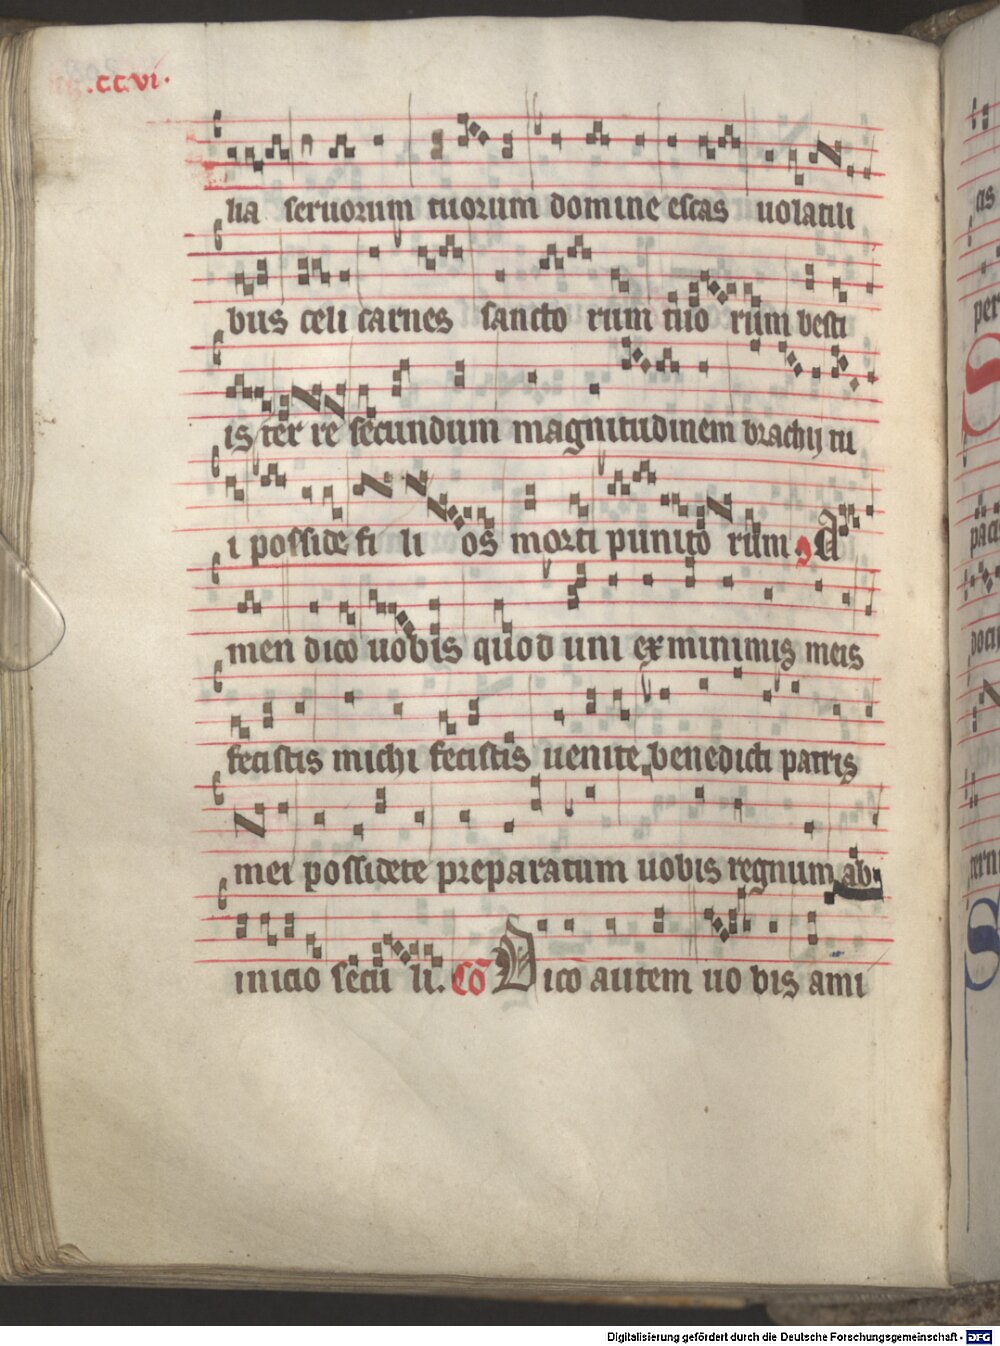 .ccvi.
lia seruorum tuorum domine escas uolatili
bus celi carnes sancto rum tuo rum besti
is ter re secundum magnitudinem brachij tu
i posside fi li os morti punito rum A
men dico uobis quod uni ex minimis meis
fecistis michi fecistis uenite benedicti patris
mei possidete preparatum uobis regnum ab
inicio secu li. Cō Dico autem uo bis ami
as
per
S
pac
docu
S
Digitalisierung gefördert durch die Deutsche Forschungsgemeinschaft - DFG